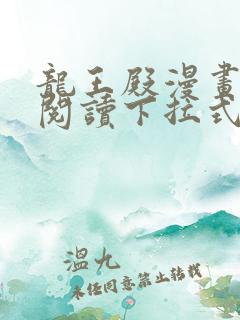 龍王殿漫畫
閱讀下拉式
溫九
未經同意禁止轉載